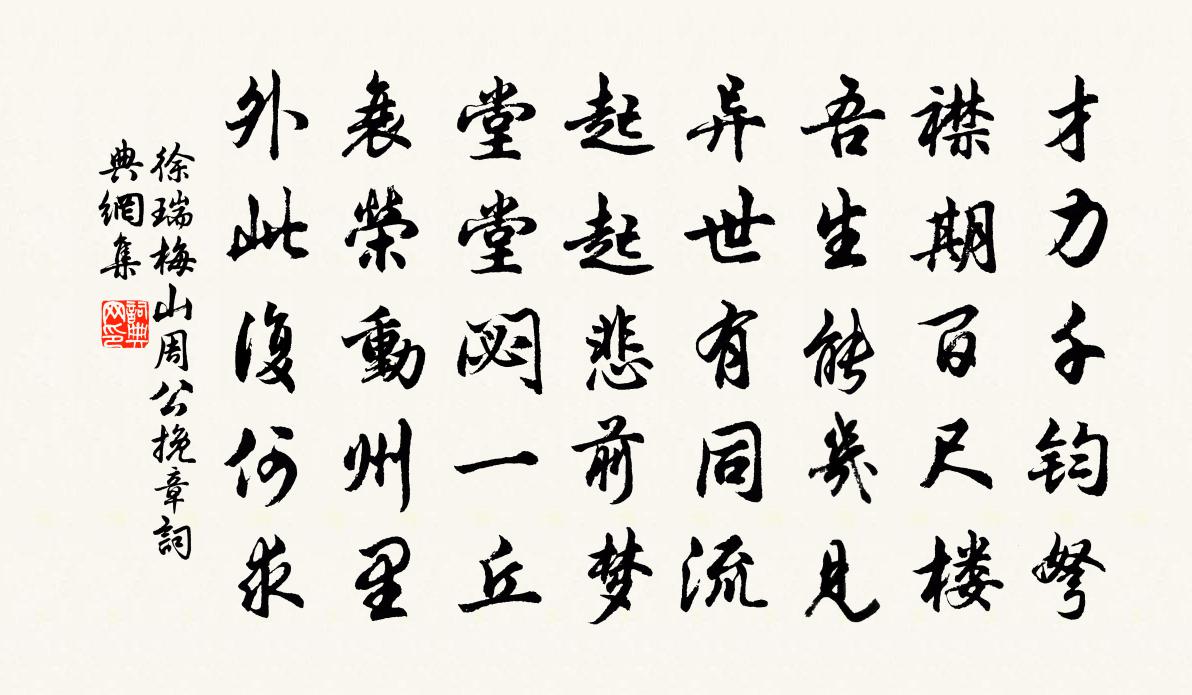 才力千钧弩
襟期百尺楼
吾生能几见
异世有同流
起起悲前梦
堂堂閟一丘
衰荣動州里
外此復何求
徐瑞梅山周公挽章詞
典網集
詞典网印